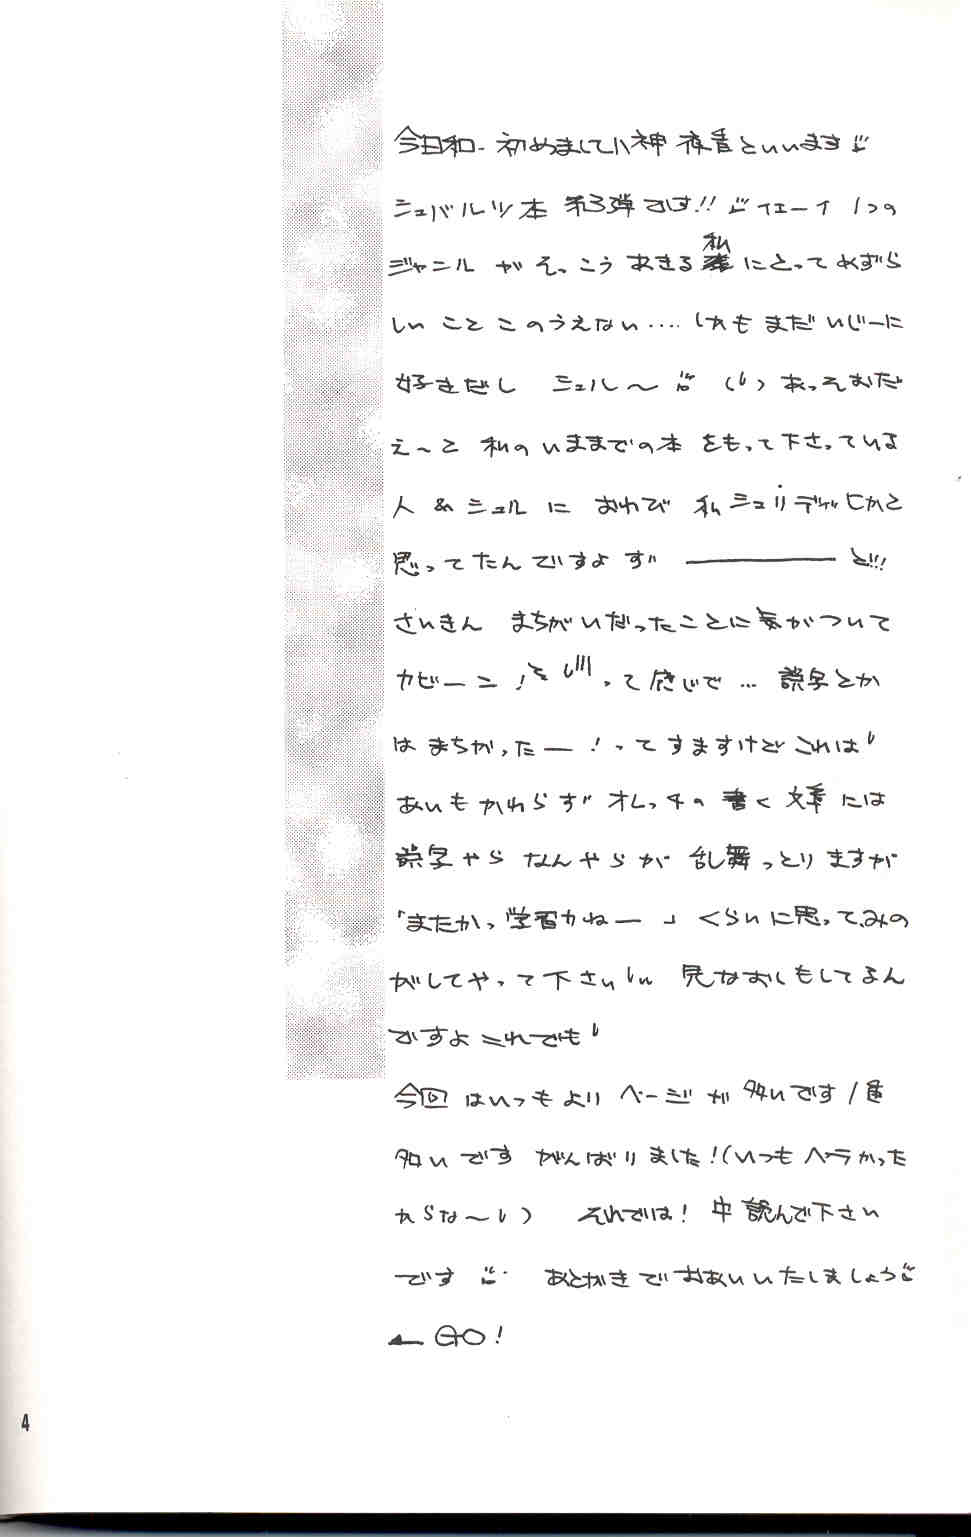 今日和- 初めまして小神 夜香といいます♪
シュバルツ本 第3弾です!! ♪ イェーイ 1つの
ジャンル が そっこう あきる 私 にとって めずら
しい こと このうえない‥‥ しかも まだ いじーに
好きだし シュル〜 あっ そおだ
え〜と 私の いままでの本 をもって下さっている
人 & シュル に おわび 私 シュリディッヒかと
思ってたんですよ ず゛ ――― と!!!
さいきん まちがいだったことに気がついて
ガビーン! って感じで… 誤字とか
は まちがったー! ってすますけど これは
あいもかわらず オレッチの書く文章には
誤字やら なんやらが 乱舞っとりますが
「またかっ 学習力ねー」くらいに思って、みの
がしてやって下さい 見なおしもしてるん
ですよ これでも
今回はいつもより ページが 多いです 1番
多いです がんばりました!(いつもペラかった
からな〜) それでは! 中 読んで下さい
です あとがきでおあいいたしましょう
← GO!
4